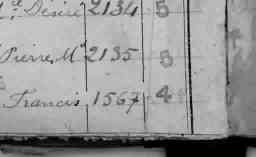 Desire 2134 5
Pierre, Me 2135 5
Francis, 1567 4